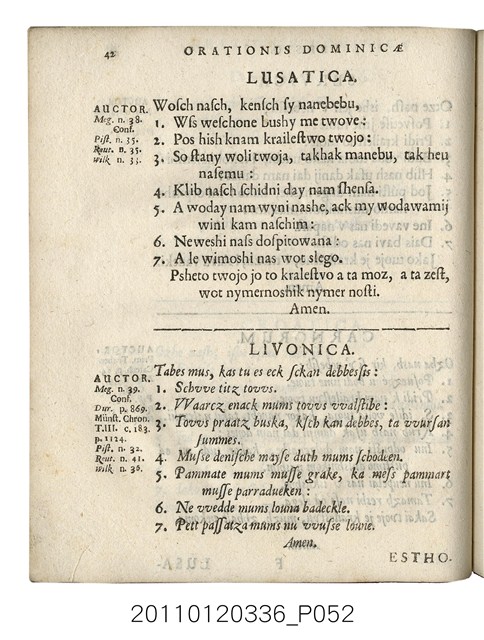 42 ORATIONIS DOMINICÆ
LUSATICA.
AUCTOR.
Meg. n. 38.
Conf.
Pist. n. 35.
Reut. n. 35.
Wilk n. 33.
Wosch nasch, kensch sy nanebebu,
1. Wſs weſchone bushy me twove:
2. Pos hish knam kraileſtwo twojo:
3. So ſtany woli twoja, takhak manebu, tak heu
naſemu:
4. Klib naſch ſchidni day nam ſhenſa.
5. A woday nam wyni nashe, ack my wodawamij
wini kam naſchim:
6. Neweshi naſs doſpitowana:
7. A le wimoshi nas wot slego.
Psheto twojo jo to kraleſtvo a ta moz, a ta zeſt,
wot nymernoshik nymer noſti.
Amen.
LIVONICA.
AUCTOR.
Meg. n. 39.
Conf.
Dur. p. 869.
Münſt. Chron.
T.III. c. 183.
p. 1124.
Piſt. n. 32.
Reut. n. 41.
Wilk n. 36.
Tabes mus, kas tu es eck ſckan debbesſis:
1. Schvve titz tovvs.
2. VVaarcz enack mums tovvs vvalſtibe:
3. Tovvs praatz buska, kſch kan debbes, ta vvurſan
ſummes.
4. Muſse deniſche mayſe duth mums ſchodeen.
5. Pammate mums muſſe grake, ka meſs pammart
muſſe parradueken:
6. Ne vvedde mums louna badeckle.
7. Pett paſſatza mums nu vvuſse loune.
Amen.
ESTHO-
20110120336_P052